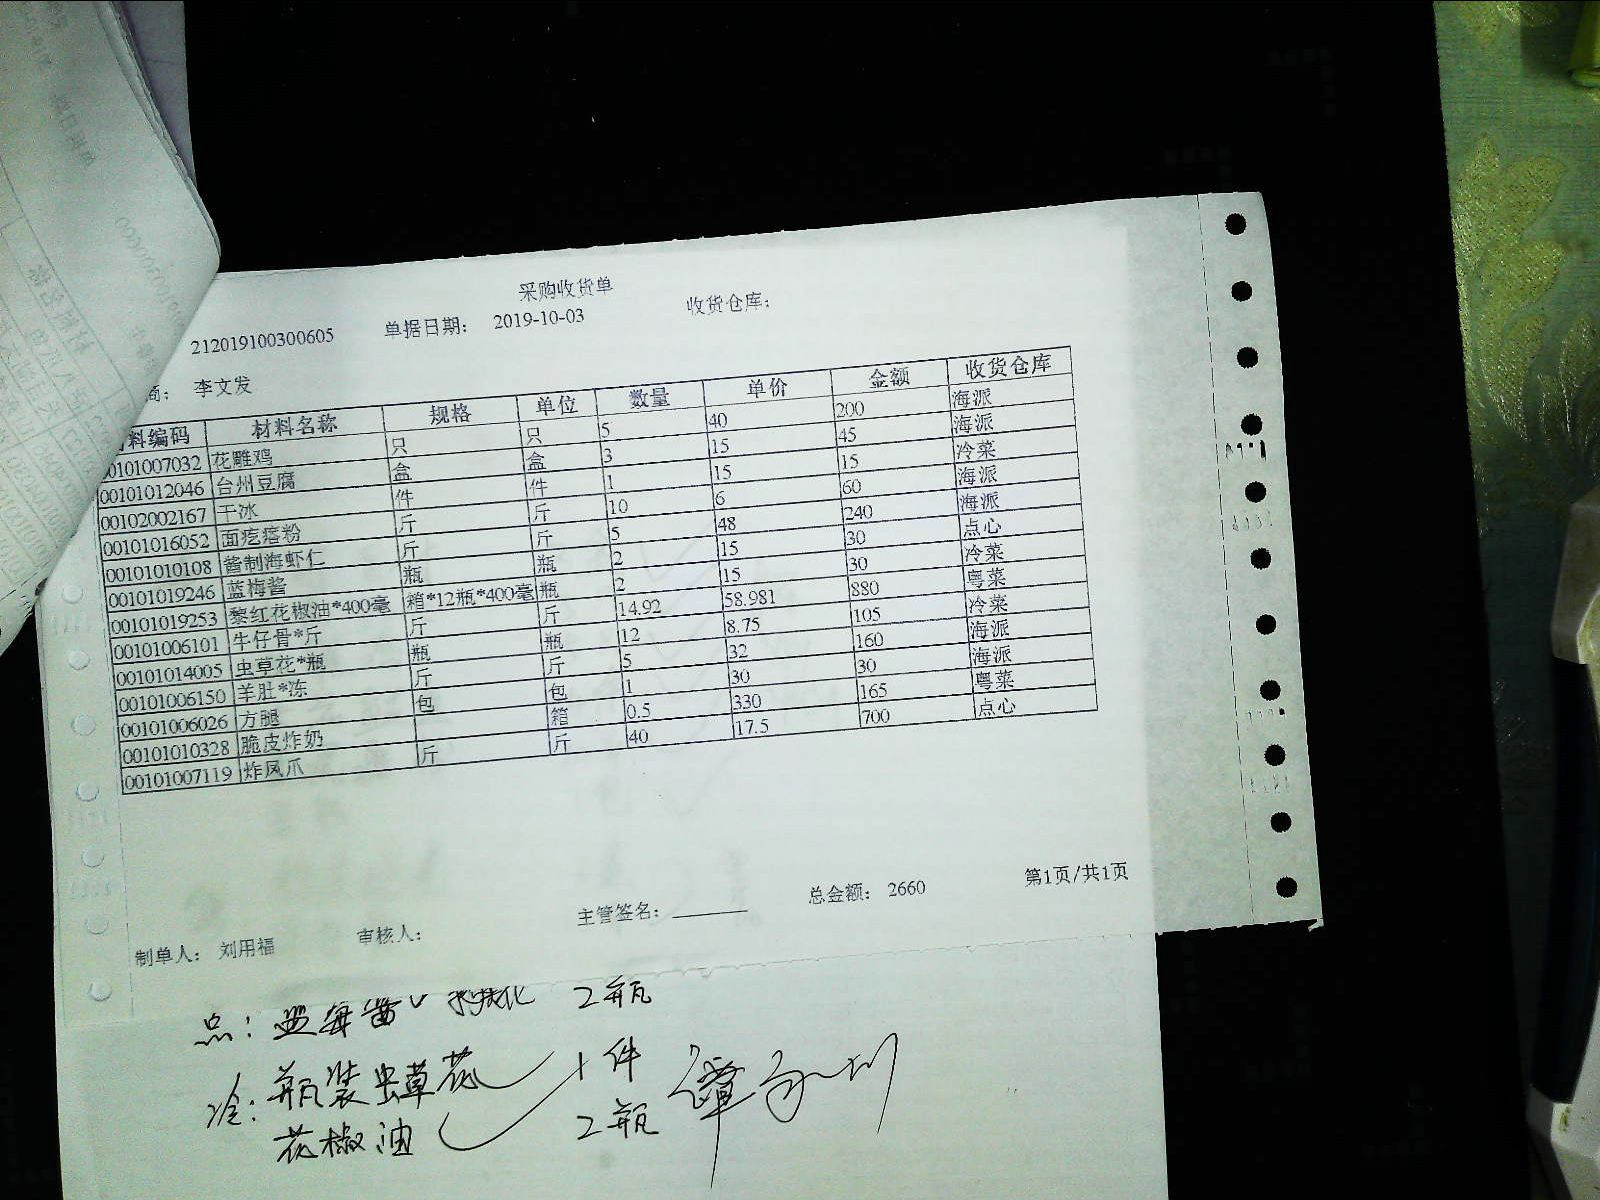 采购收货单
212019100300605 单据日期: 2019-10-03 收货仓库:
商: 李文发
料编码 材料名称 规格 单位 数量 单价 金额 收货仓库
00101007032 花雕鸡 只 只 5 40 200 海派
00101012046 台州豆腐 盒 盒 3 15 45 海派
00102002167 干冰 件 件 1 15 15 冷菜
00101016052 面疙瘩粉 斤 斤 10 6 60 海派
00101010108 酱制海虾仁 斤 斤 5 48 240 海派
00101019246 蓝梅酱 瓶 瓶 2 15 30 点心
00101019253 黎红花椒油*400毫 箱*12瓶*400毫 瓶 2 15 30 冷菜
00101006101 牛仔骨*斤 斤 斤 14.92 58.981 880 粤菜
00101014005 虫草花*瓶 瓶 瓶 12 8.75 105 冷菜
00101006150 羊肚*冻 斤 斤 5 32 160 海派
00101006026 方腿 包 包 1 30 30 海派
00101010328 脆皮炸奶 箱 0.5 330 165 粤菜
00101007119 炸凤爪 斤 斤 40 17.5 700 点心
制单人: 刘用福 审核人: 主管签名: 总金额: 2660 第1页/共1页
点: 2瓶
冷: 瓶装虫草花 1件
花椒油 2瓶